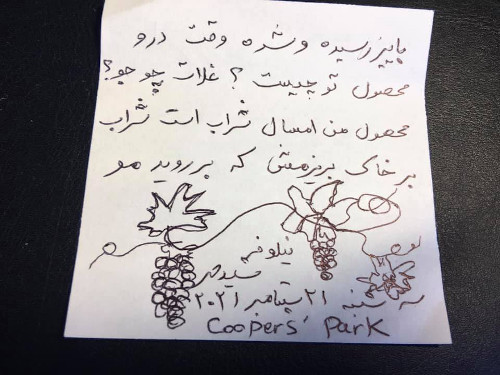 پاییز رسیده و شده وقت درو
محصول تو چیست ؟ غلات چو جو ؟
محصول من امسال شراب است شراب
بر خاک بریزمش که بر روید مو
نیلوفر
شیدمهر
سه شنبه ۲۱ سپتامبر ۲۰۲۱
Coopers' Park